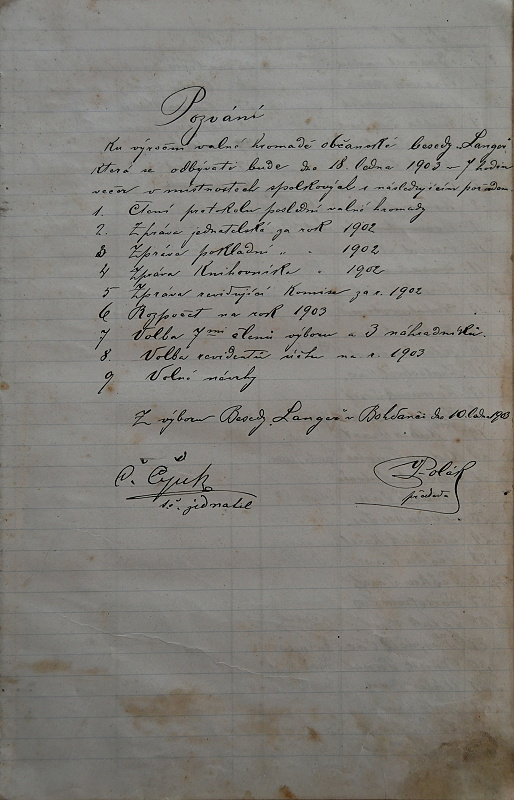 Pozvání
Ku výroční valné hromadě občanské besedy „Langer“
která se odbývati bude dne 18. ledna 1903 – 7 hodin
večer v místnostech spolkových s následujícím pořadem
1. Čtení protokolu poslední valné hromady
2. Zpráva jednatelská za rok 1902
3 Zpráva pokladní „ „ 1902
4 Zpráva Knihovníka „ 1902
5 Zpráva revidující Komise za r. 1902
6 Rozpočet na rok 1903
7 Volba 7mi členů výboru a 3 náhradníků.
8. Volba revidentů účtu na r. 1903
9 Volné návrhy
Z výboru Besedy „Langer“ v Bohdanči dne 10. ledna 1903
Polák
t. č. jednatel
předseda